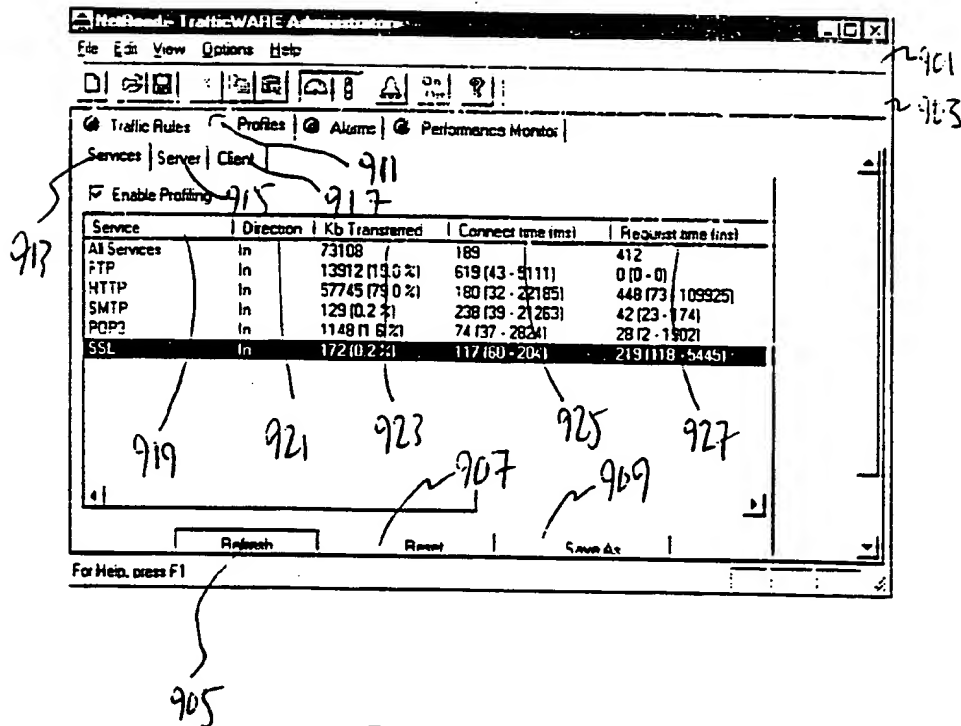 TrafficWARE Administrator
File Edit View Options Help
901
903
Traffic Rules Profiles Alarms Performance Monitor
Services Server Client
911
Enable Profiling
915 917
913
Service Direction Kb Transferred Connect time (ms) Request time (ms)
All Services In 73108 189 412
FTP In 13912 (19.0 %) 619 (43 - 9111) 0 (0 - 0)
HTTP In 57745 (79.0 %) 180 (32 - 22185) 448 (73 - 109925)
SMTP In 129 (0.2 %) 238 (39 - 21263) 42 (23 - 174)
POP3 In 1148 (1.6 %) 74 (37 - 2824) 28 (2 - 1902)
SSL In 172 (0.2 %) 117 (60 - 204) 219 (118 - 5445)
919 921 923 925 927
907 909
Refresh Reset Save As
For Help, press F1
905